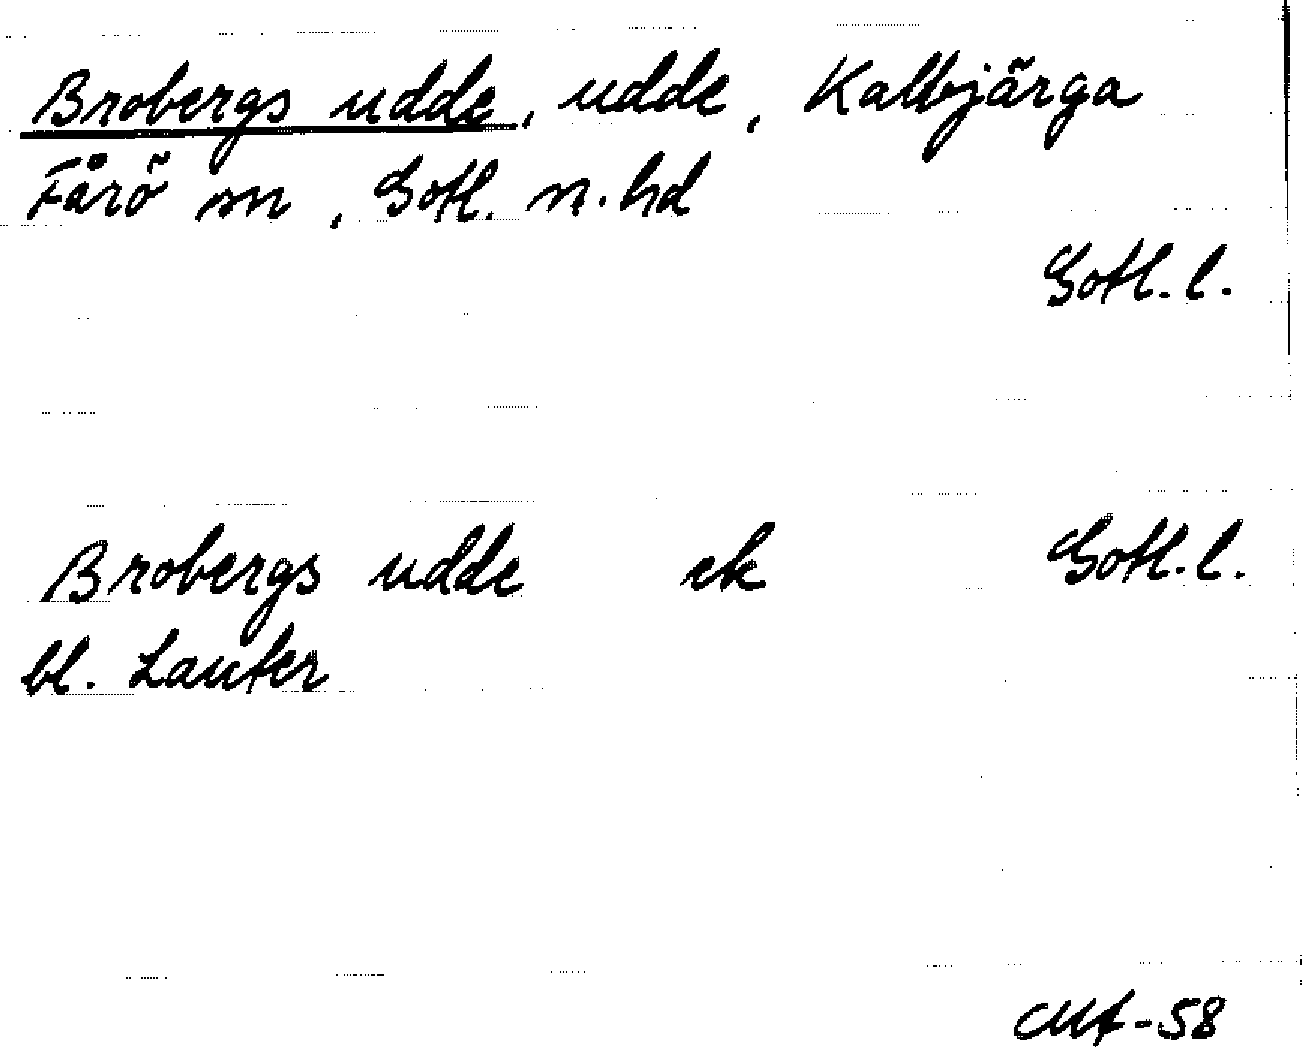 Brobergs udde, udde, Kalbjärga
Fårö sn, Gotl. n. hd
Gotl. l.
Brobergs udde ek Gotl. l.
bl. Lauter